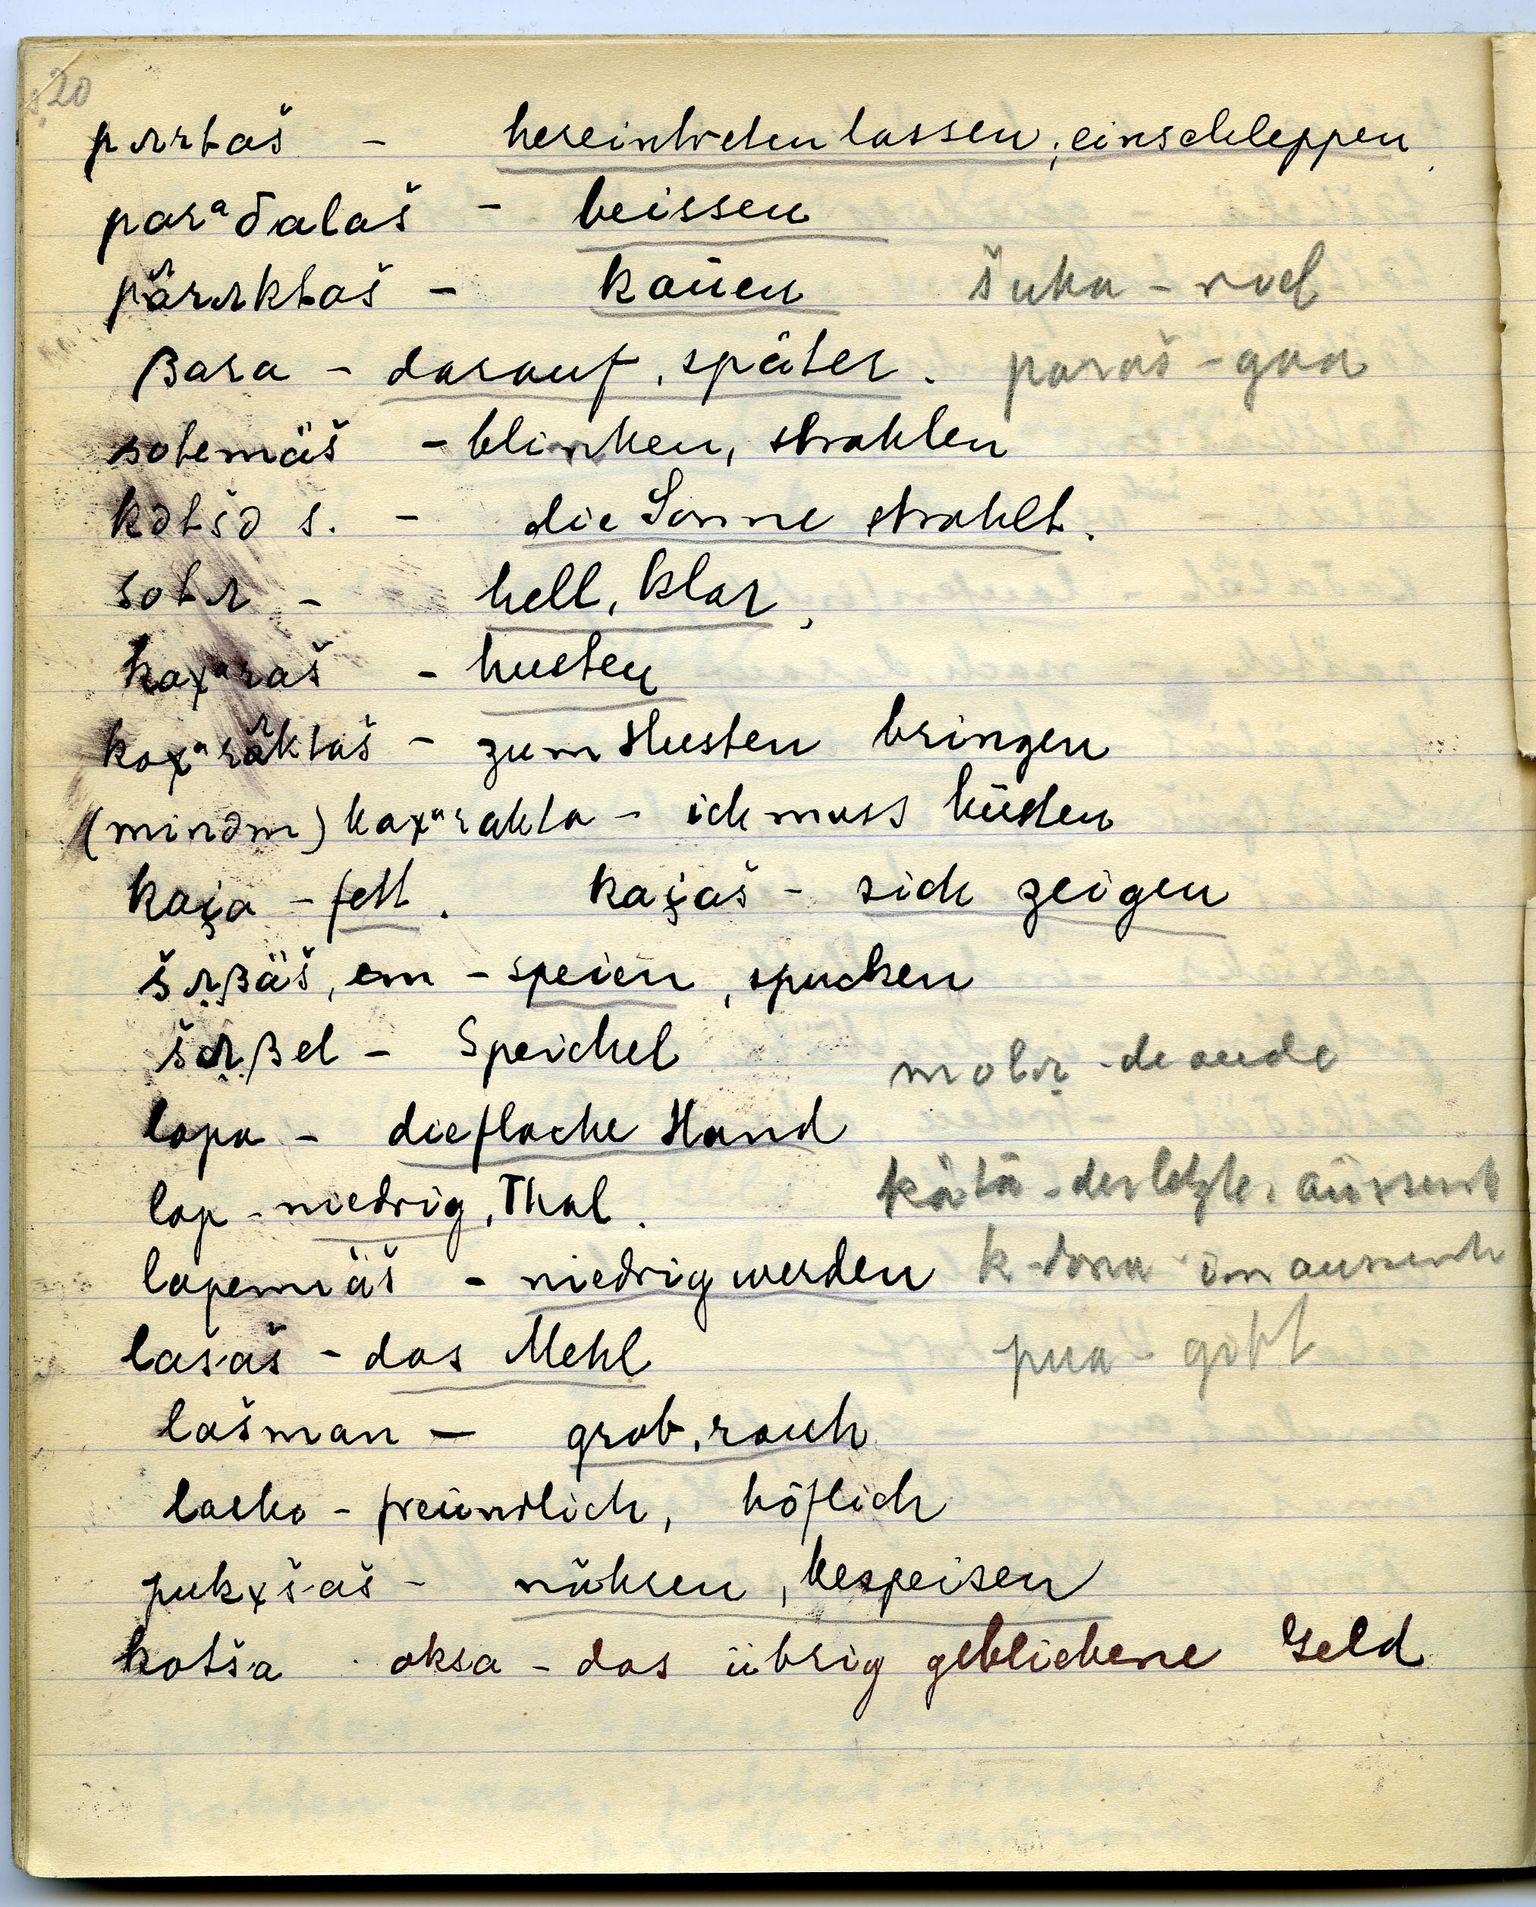 20
pᴧrtaš - hereintreten lassen, einschleppen
parᵃδalaš - beissen
pärᴧktaš - kauen šuka - voel
βara - darauf, später. paraš - goa
sotemäš - blinken, strahlen
kətšə s. - die Sonne strahlt.
sotᴧ - hell, klar,
kaχᵃraš - husten
koχᵃrᴧktaš - zum Husten bringen
(minəm) kaχᵃrakta - ich muss hüsten
kaja - fett. kajaš - sich zeigen
šᴧβäš, em - speien, spucken
šᴧβel - Speichel
lapa - die flache Hand
lap - niedrig, Thal.
lapemäš - niedrig werden
lašaš - das Mehl
lašman - grob, rauh
lasko - freundlich, höflich
pukχšaš - nähren, bespeisen
kotša oksa - das übrig gebliebene Geld